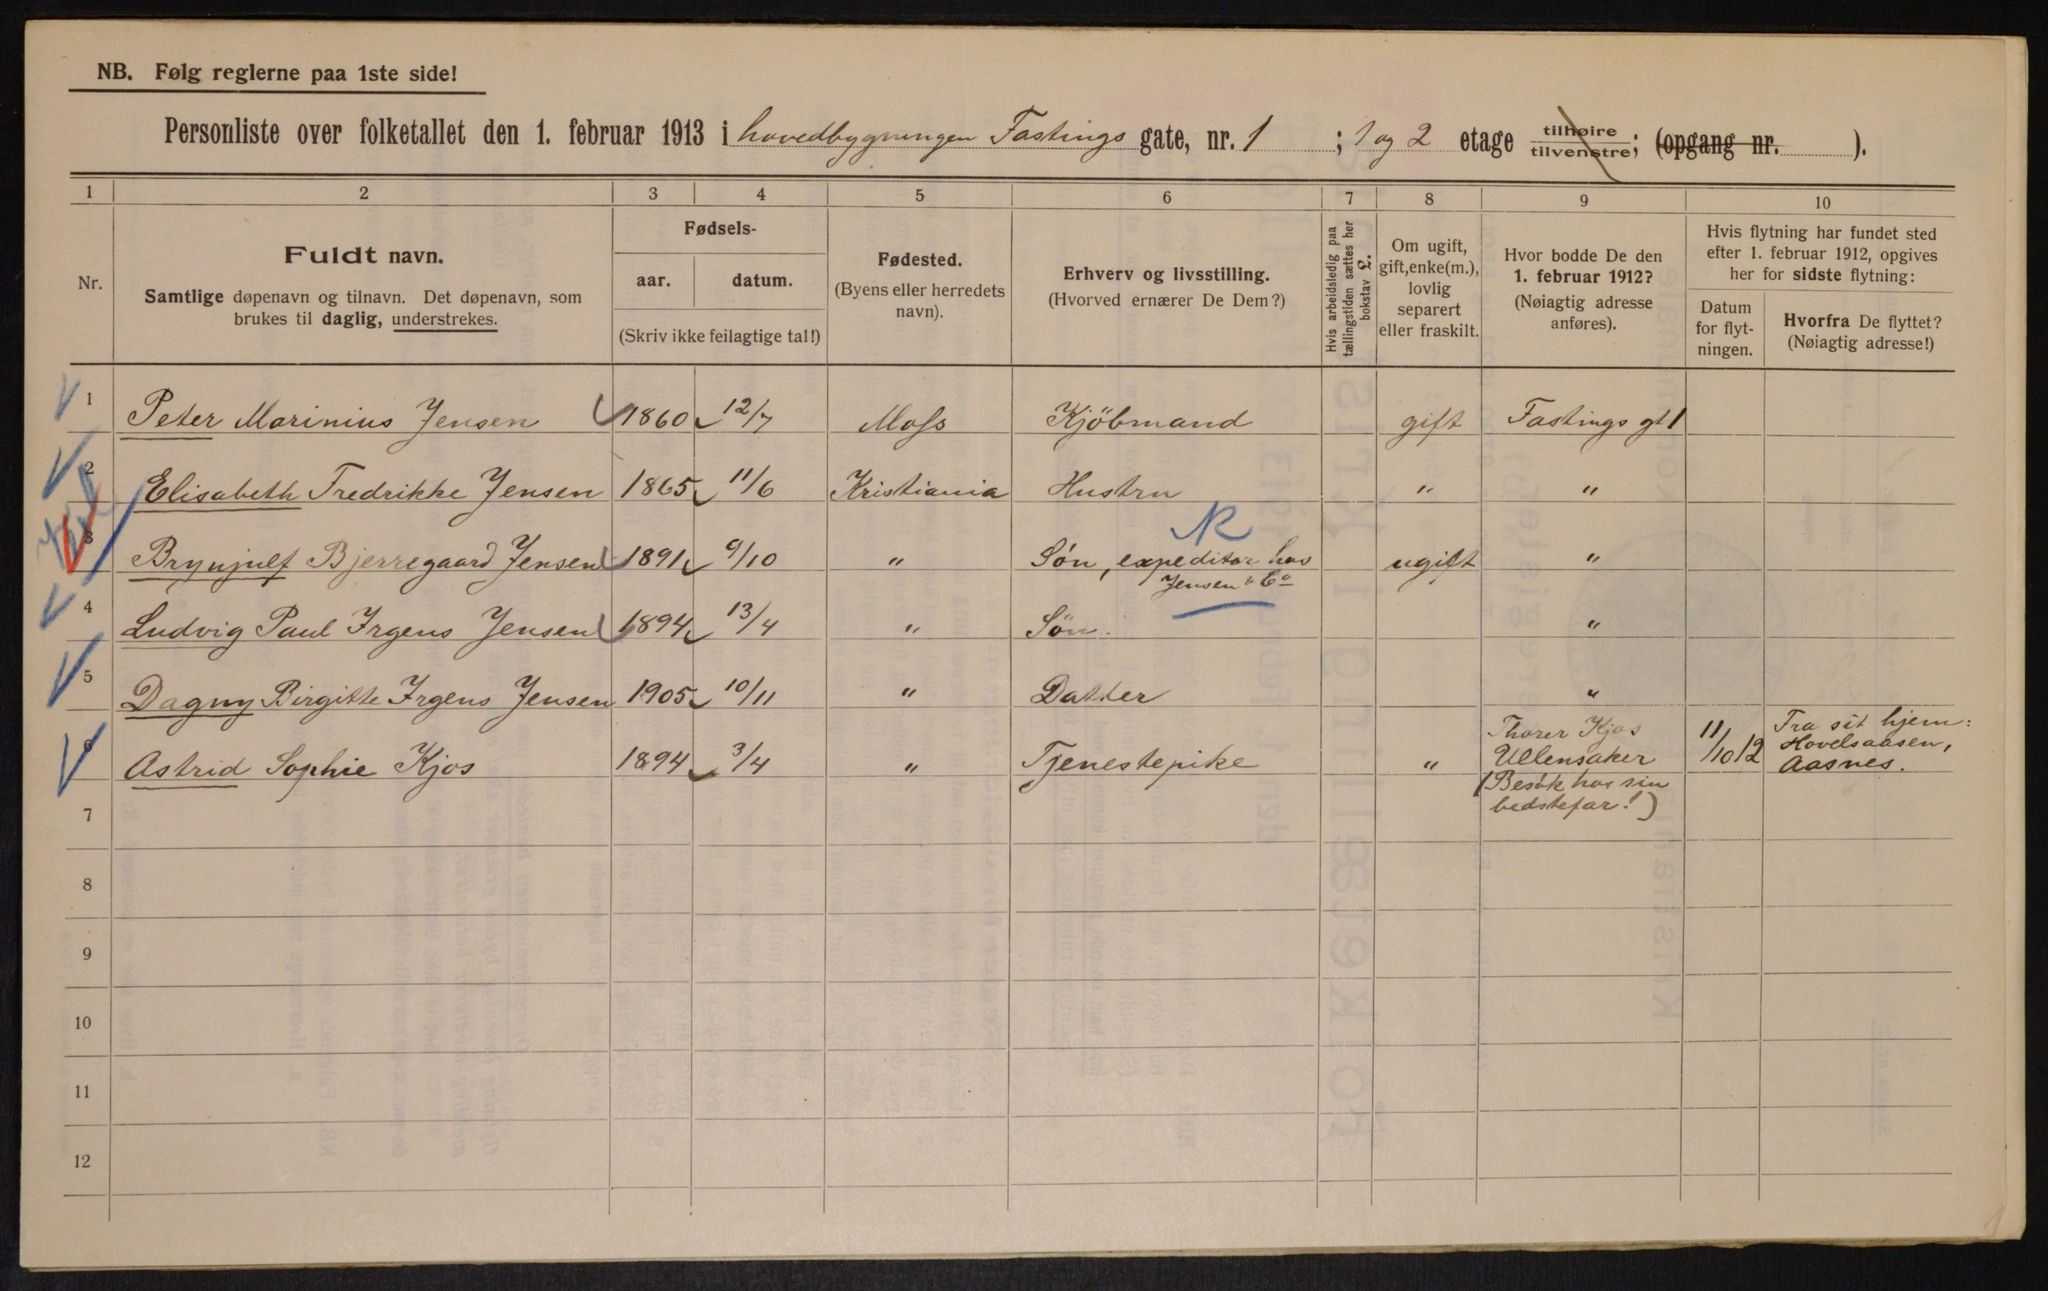 NB. Følg reglerne paa 1ste side!
Personliste over folketallet den 1. februar 1913 i hovedbygningen Fastings gate, nr. 1 ; 1 og 2 etage tilhøire tilvenstre; (opgang nr. ).
1 2 3 4 5 6 7 8 9 10
Nr.
Fuldt navn.
Samtlige døpenavn og tilnavn. Det døpenavn, som
brukes til daglig, understrekes.
Fødsels-
aar. datum.
(Skriv ikke feilagtige tal!)
Fødested.
(Byens eller herredets
navn).
Erhverv og livsstilling.
(Hvorved ernærer De Dem?)
Hvis arbeidsledig paa
tællingstiden sættes her
bokstav L.
Om ugift,
gift, enke(m.),
lovlig
separert
eller fraskilt.
Hvor bodde De den
1. februar 1912?
(Nøiagtig adresse
anføres).
Hvis flytning har fundet sted
efter 1. februar 1912, opgives
her for sidste flytning:
Datum
for flyt-
ningen.
Hvorfra De flyttet?
(Nøiagtig adresse!)
1 Peter Marinius Jensen 1860 12/7 Moss Kjöbmand gift Fastings gt 1
2 Elisabeth Fredrikke Jensen 1865 11/6 Kristiania Hustru " "
3 Brynjulf Bjerregaard Jensen 1891 9/10 " Sön, expeditör hos ugift "
Jensen & Co
4 Ludvig Paul Irgens Jensen 1894 13/4 " Sön. "
5 Dagny Birgitte Irgens Jensen 1905 10/11 " Datter "
6 Astrid Sophie Kjos 1894 3/4 " Tjenestepike " Thorer Kjos
Ullensaker
(Besök hos sin
bedstefar!)
11/10 12
Fra sit hjem:
Hovelsaasen,
Aasnes.
7
8
9
10
11
12